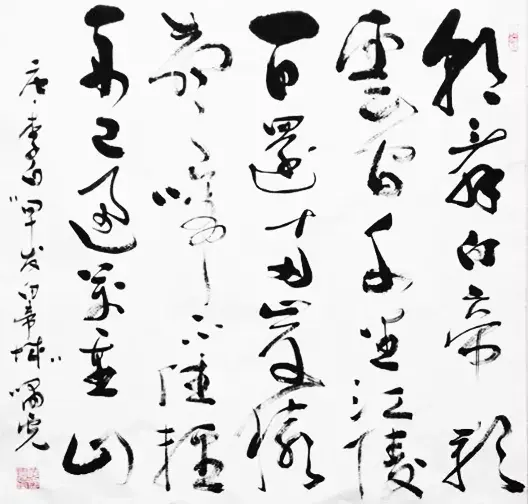 朝辭白帝彩
雲間千里江陵
一日還兩岸猿
聲啼不住輕
舟已過萬重山
唐·李白"早发白帝城"